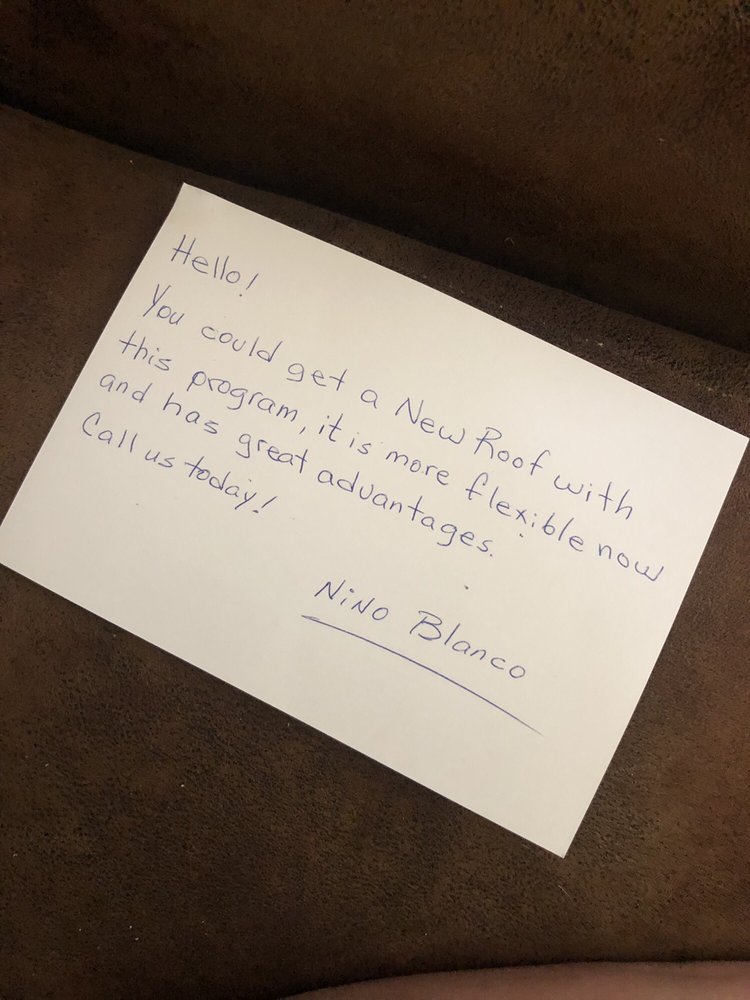 Hello!
You could get a New Roof with
this program, it is more flexible now
and has great advantages.
Call us today!
NiNo Blanco